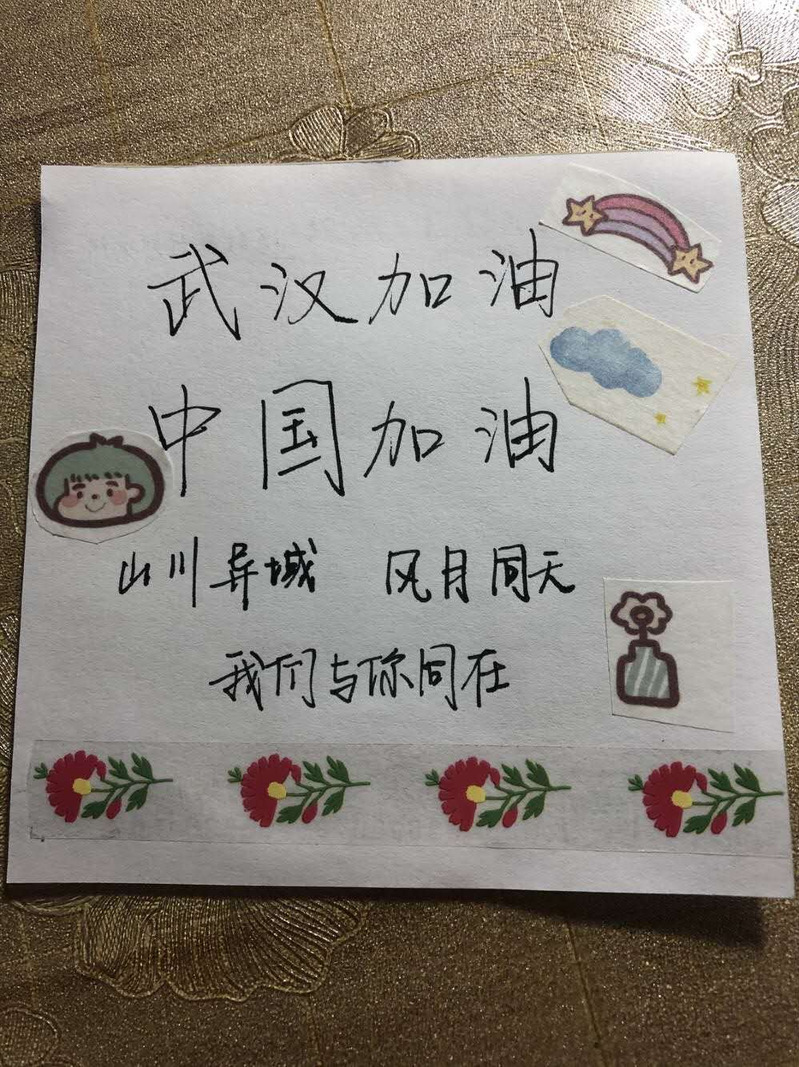 武汉加油
中国加油
山川异域 风月同天
我们与你同在